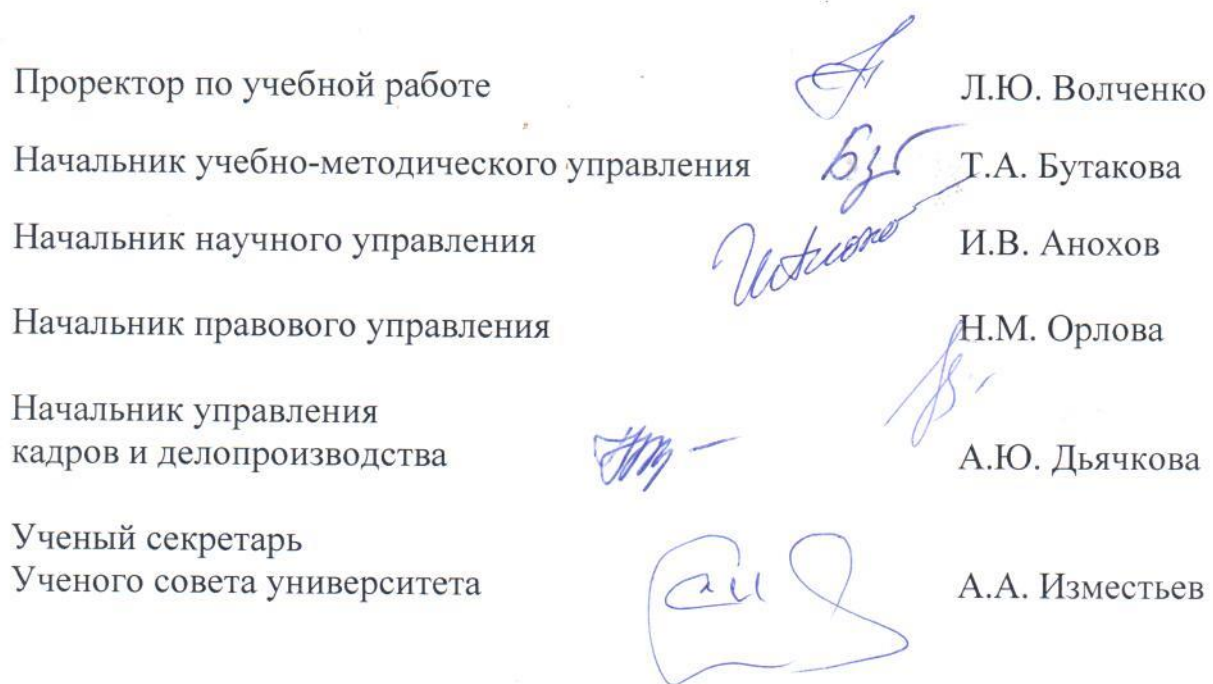 Проректор по учебной работе Л.Ю. Волченко
Начальник учебно-методического управления Т.А. Бутакова
Начальник научного управления И.В. Анохов
Начальник правового управления Н.М. Орлова
Начальник управления
кадров и делопроизводства А.Ю. Дьячкова
Ученый секретарь
Ученого совета университета А.А. Изместьев